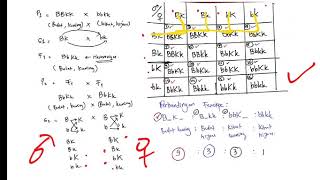 P₁ = BBKK × bbkk
(Bulat, kuning) (kisut, hijau)
G₁ = BK bk
F₁ = BbKk → Heterozigot
(Bulat, kuning)
P₂ = F₁ × F₁
BbKk × BbKk
(Bulat, kuning) (Bulat, kuning)
G₂ = B K B K
b k b k
BK BK
Bk Bk
bK bK
bk bk
♂ ♀
♂/♀ BK Bk bK bk
BK BBKK BBKk BbKK BbKk
Bk BBKk BBkk BbKk Bbkk
bK BbKK BbKk bbKK bbKk
bk BbKk Bbkk bbKk bbkk
Perbandingan Fenotipe :
B_K_ B_kk bbK_ bbkk
Bulat kuning : Bulat hijau : Kisut kuning : Kisut hijau
9 : 3 : 3 : 1